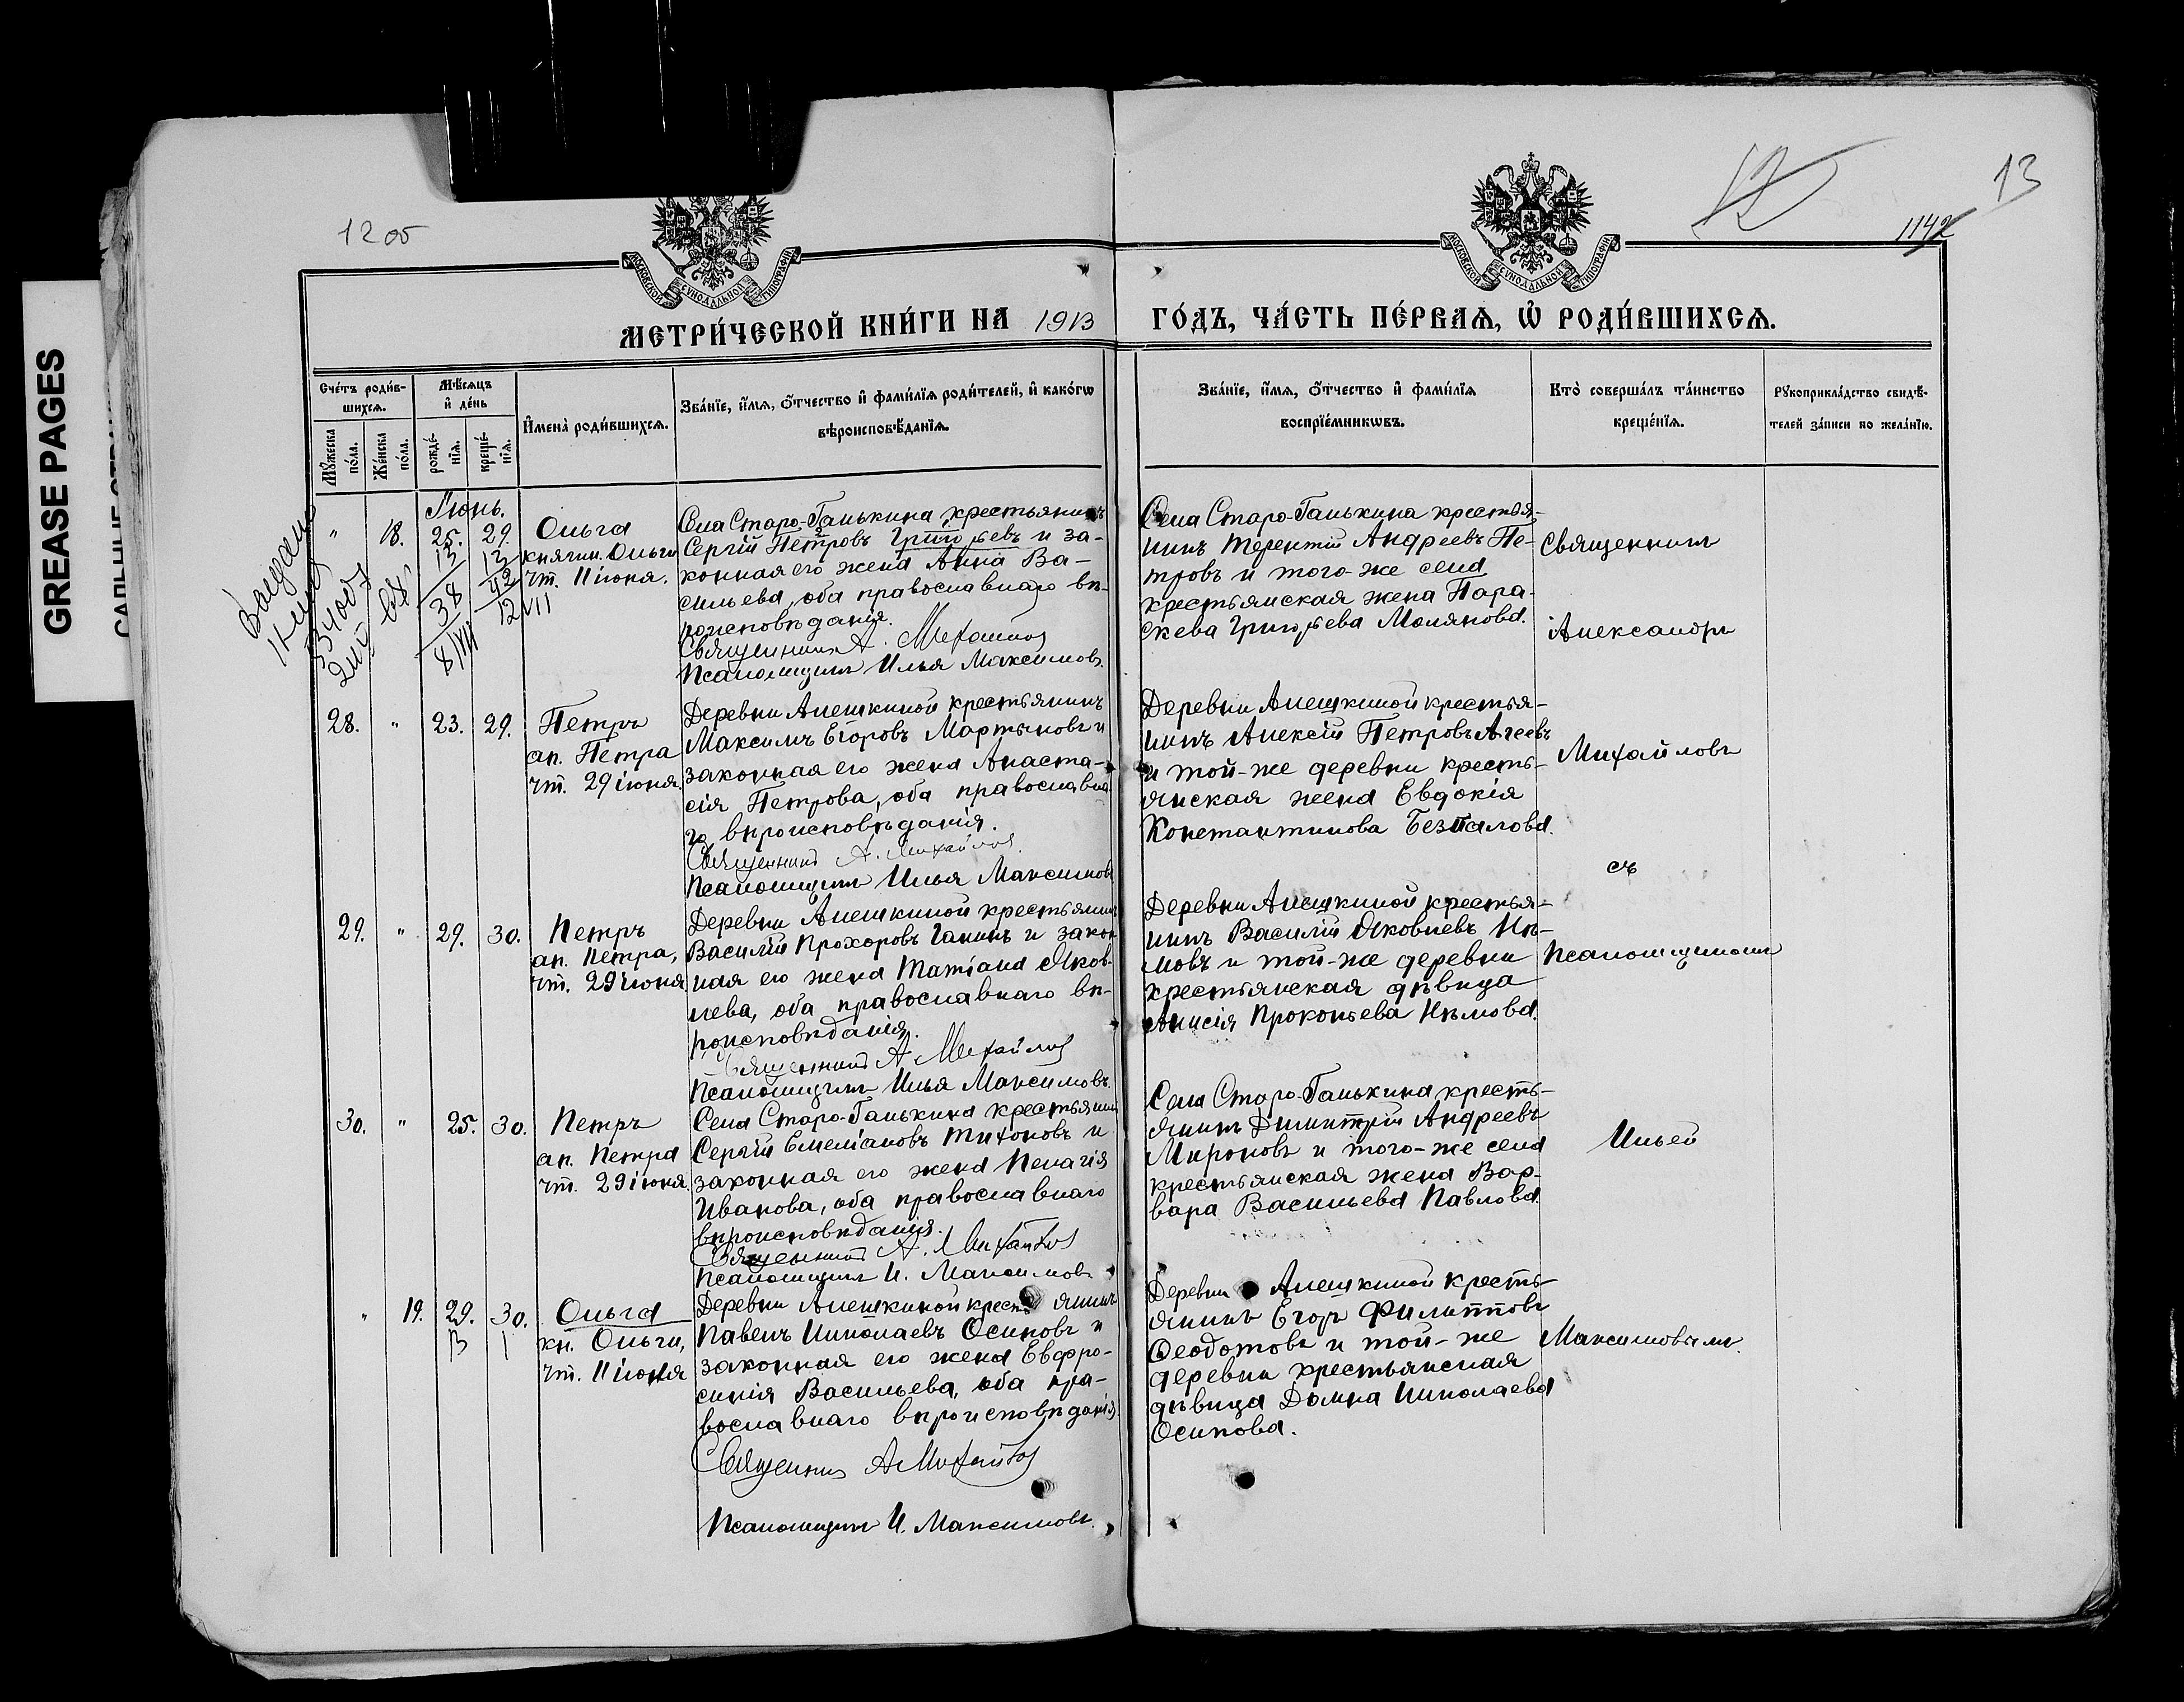 GREASE PAGES
12 об
13
1142
МОСКОВСКОЙ СѴНОДАЛЬНОЙ ТИПОГРАФІИ
МОСКОВСКОЙ СѴНОДАЛЬНОЙ ТИПОГРАФІИ
МЕТРИ́ЧЕСКОЙ КНИ́ГИ НА 1913 ГО́ДЪ, ЧА́СТЬ ПЕ́РВАѦ, Ѡ҆ РОДИ́ВШИХСѦ.
Сче́тъ роди́в-
шихсѧ.
Мꙋ́жеска по́ла.
Же́нска по́ла.
Мѣ́сѧцъ
и҆ де́нь
рожде́-
нїѧ.
креще́-
нїѧ.
И҆мена̀ роди́вшихсѧ.
Зва́нїе, и҆́мѧ, ѻ҆́тчество и҆ фами́лїѧ роди́телей, и҆ како́гѡ
вѣроисповѣ́данїѧ.
Зва́нїе, и҆́мѧ, ѻ҆́тчество и҆ фами́лїѧ
воспрїе́мникѡвъ.
Кто̀ соверша́лъ та́инство
креще́нїѧ.
Рꙋкоприкла́дство свидѣ́-
телей за́писи по жела́нїю.
Іюнь.
" 18. 25. 29. Ольга
княгин. Ольги
чт. 11 іюня.
13 13
38 42
8/VII 12 VII
Села Старо-Ганькина крестьянинъ
Сергій Петровъ Григорьевъ и за-
конная его жена Анна Ва-
сильева, оба православнаго вѣ-
роисповѣданія.
Священникъ А. Михайловъ
Псаломщикъ Илья Максимовъ.
Села Старо-Ганькина крестья-
нинъ Терентій Андреевъ Пе-
тровъ и того-же села
крестьянская жена Пара-
скева Григорьева Молянова.
Священникъ
Александръ
28. " 23. 29. Петръ
ап. Петра
чт. 29 іюня.
Деревни Алешкиной крестьянинъ
Максимъ Егоровъ Мартыновъ и
законная его жена Анаста-
сія Петрова, оба православна-
го вѣроисповѣданія.
Священникъ А. Михайловъ
Псаломщикъ Илья Максимовъ
Деревни Алешкиной крестья-
нинъ Алексій Петровъ Агеевъ
и той-же деревни кресть-
янская жена Евдокія
Константинова Безпалова.
Михайловъ
съ
29. " 29. 30. Петръ
ап. Петра,
чт. 29 іюня
Деревни Алешкиной крестьянинъ
Василій Прохоровъ Ганинъ и закон-
ная его жена Татіана Яков-
лева, оба православнаго вѣ-
роисповѣданія.
Священникъ А. Михайловъ
Псаломщикъ Илья Максимовъ.
Деревни Алешкиной крестья-
нинъ Василій Яковлевъ Нѣ-
мовъ и той-же деревни
крестьянская дѣвица
Анисія Прокопьева Нѣмова.
Псаломщикомъ
30. " 25. 30. Петръ
ап. Петра
чт. 29 іюня.
Села Старо-Ганькина крестьянинъ
Сергій Емеліановъ Тихоновъ и
законная его жена Пелагія
Иванова, оба православнаго
вѣроисповѣданія.
Священникъ А. Михайловъ
Псаломщикъ И. Максимовъ
Села Старо-Ганькина кресть-
янинъ Димитрій Андреевъ
Мироновъ и того-же села
крестьянская жена Вар-
вара Васильева Павлова.
Ильей
" 19. 29. 30. Ольга
кн. Ольги,
чт. 11 іюня
Деревни Алешкиной крестьянинъ
Павелъ Николаевъ Осиповъ и
законная его жена Евфро-
синія Васильева, оба пра-
вославнаго вѣроисповѣданія.
Священникъ А Михайловъ
Псаломщикъ И. Максимовъ.
Деревни Алешкиной кресть-
янинъ Егоръ Филипповъ
Ѳеодотовъ и той-же
деревни крестьянская
дѣвица Домна Николаева
Осипова.
Максимовымъ.